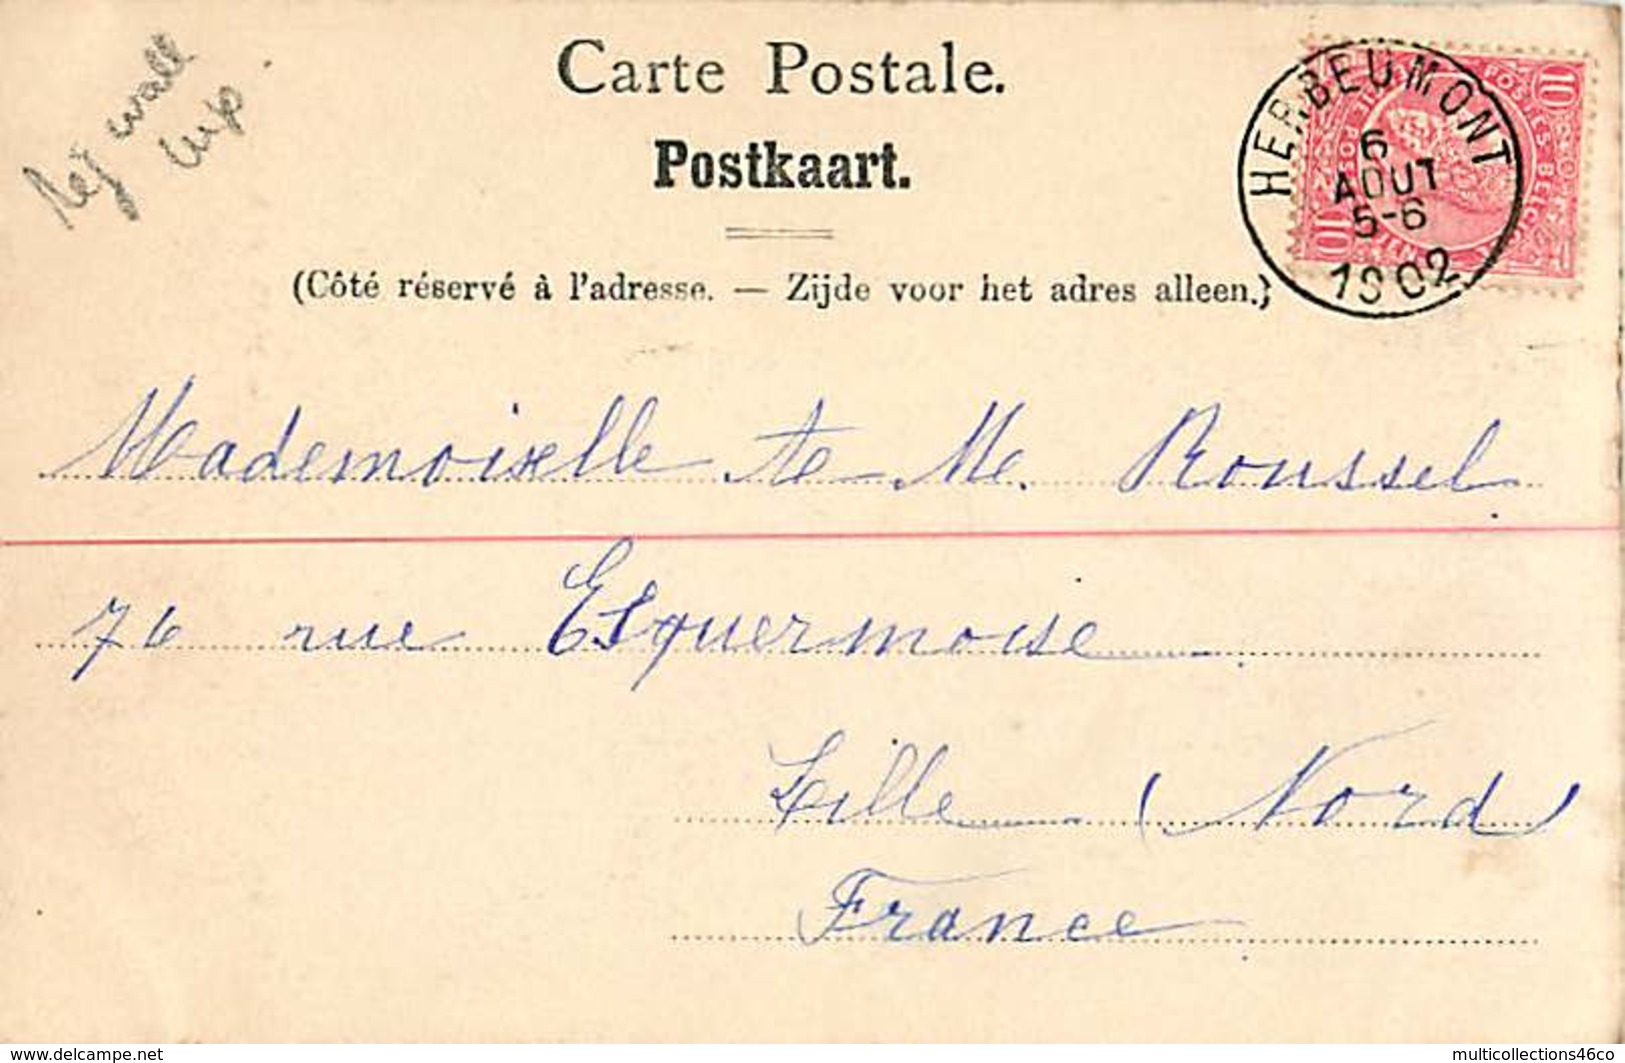 Carte Postale.
Postkaart.
(Côté réservé à l'adresse. — Zijde voor het adres alleen.)
HERBEUMONT
6
AOUT
5-6
1902
10
10
Mademoiselle Roussel
76 rue Esquermoise
Lille (Nord)
France
www.delcampe.net
multicollections46co